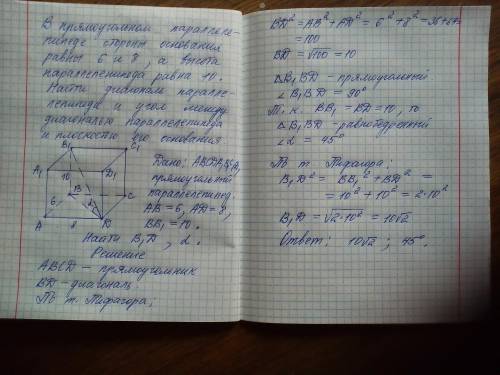 В прямоугольном параллеле-
пипеде стороны основания
равны 6 и 8, а высота
параллепепипеда равна 10.
Найти диагональ паралле-
пепипеда и угол между
диагональю параллепепипеда
и плоскостью его основания
B₁ C₁
A₁ D₁
10
B C
6
A 8 D
Дано: ABCDA₁B₁C₁D₁
прямоугольный
параллепепипед.
AB = 6, AD = 8,
BB₁ = 10.
Найти B₁D, α.
Решение
ABCD — прямоугольник
BD — диагональ.
По т. Пифагора:
BD² = AB² + AD² = 6² + 8² = 36 + 64 =
= 100
BD = √100 = 10
ΔB₁BD — прямоугольный
∠B₁BD = 90°
Т. к. BB₁ = BD = 10, то
ΔB₁BD — равнобедренный
∠α = 45°
По т. Пифагора:
B₁D² = BB₁² + BD² =
= 10² + 10² = 2·10²
B₁D = √2·10² = 10√2
Ответ: 10√2 ; 45°.